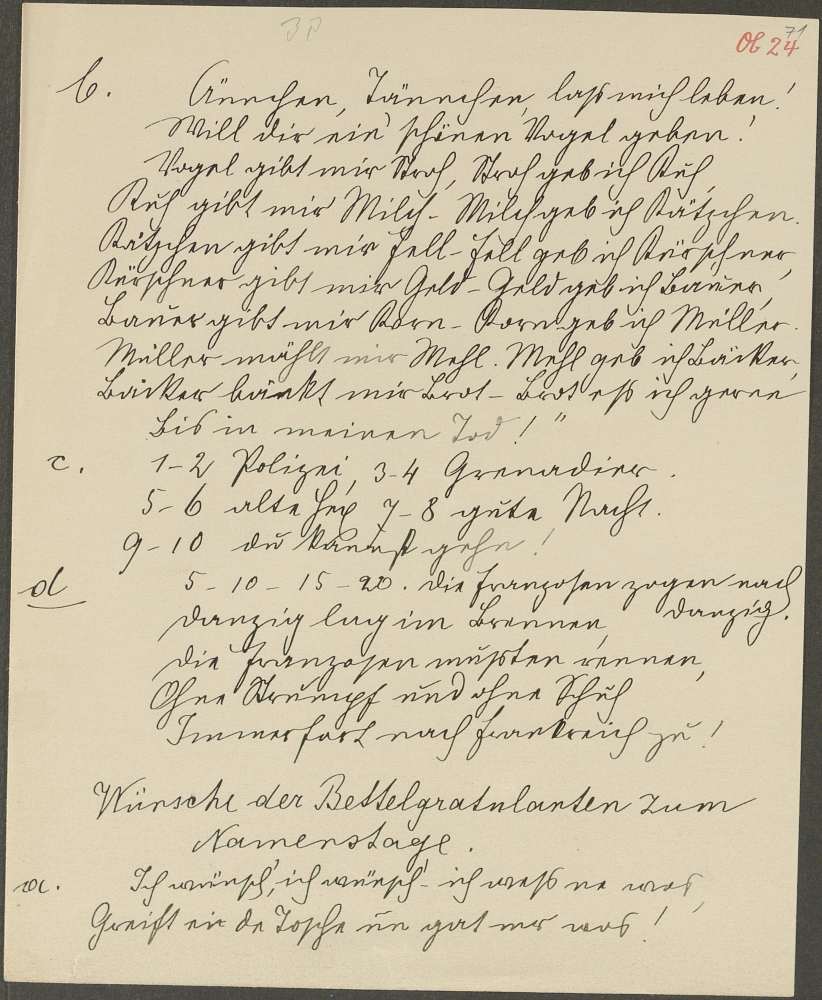 71
Ob 24
b. Ännchen, Tännchen, laß mich leben!
Will dir ein' schönen Vogel geben!
Vogel gibt mir Stroh, Stroh geb ich Kuh,
Kuh gibt mir Milch - Milch geb ich Kätzchen.
Kätzchen gibt mir Fell - Fell geb ich Kürschner,
Kürschner gibt mir Geld - Geld geb ich Bauer,
Bauer gibt mir Korn - Korn geb ich Müller.
Müller mahlt mir Mehl. Mehl geb ich Bäcker,
Bäcker bäckt mir Brot - Brot eß ich gerne
Bis in meinen Tod!"
c. 1-2 Polizei, 3-4 Grenadier.
5-6 alte Hex 7-8 gute Nacht.
9-10 du kannst gehn!
d 5-10-15-20. Die Franzosen zogen nach
Danzig.
Danzig lag im Brennen,
Die Franzosen mußten rennen,
Ohne Strumpf und ohne Schuh
Immerfort nach Frankreich zu!
Wünsche der Bettelgratulanten zum
Namenstage.
a. Ich wünsch', ich wünsch' - ich weß ne was,
Greift ei de Tosche un gat mr was!